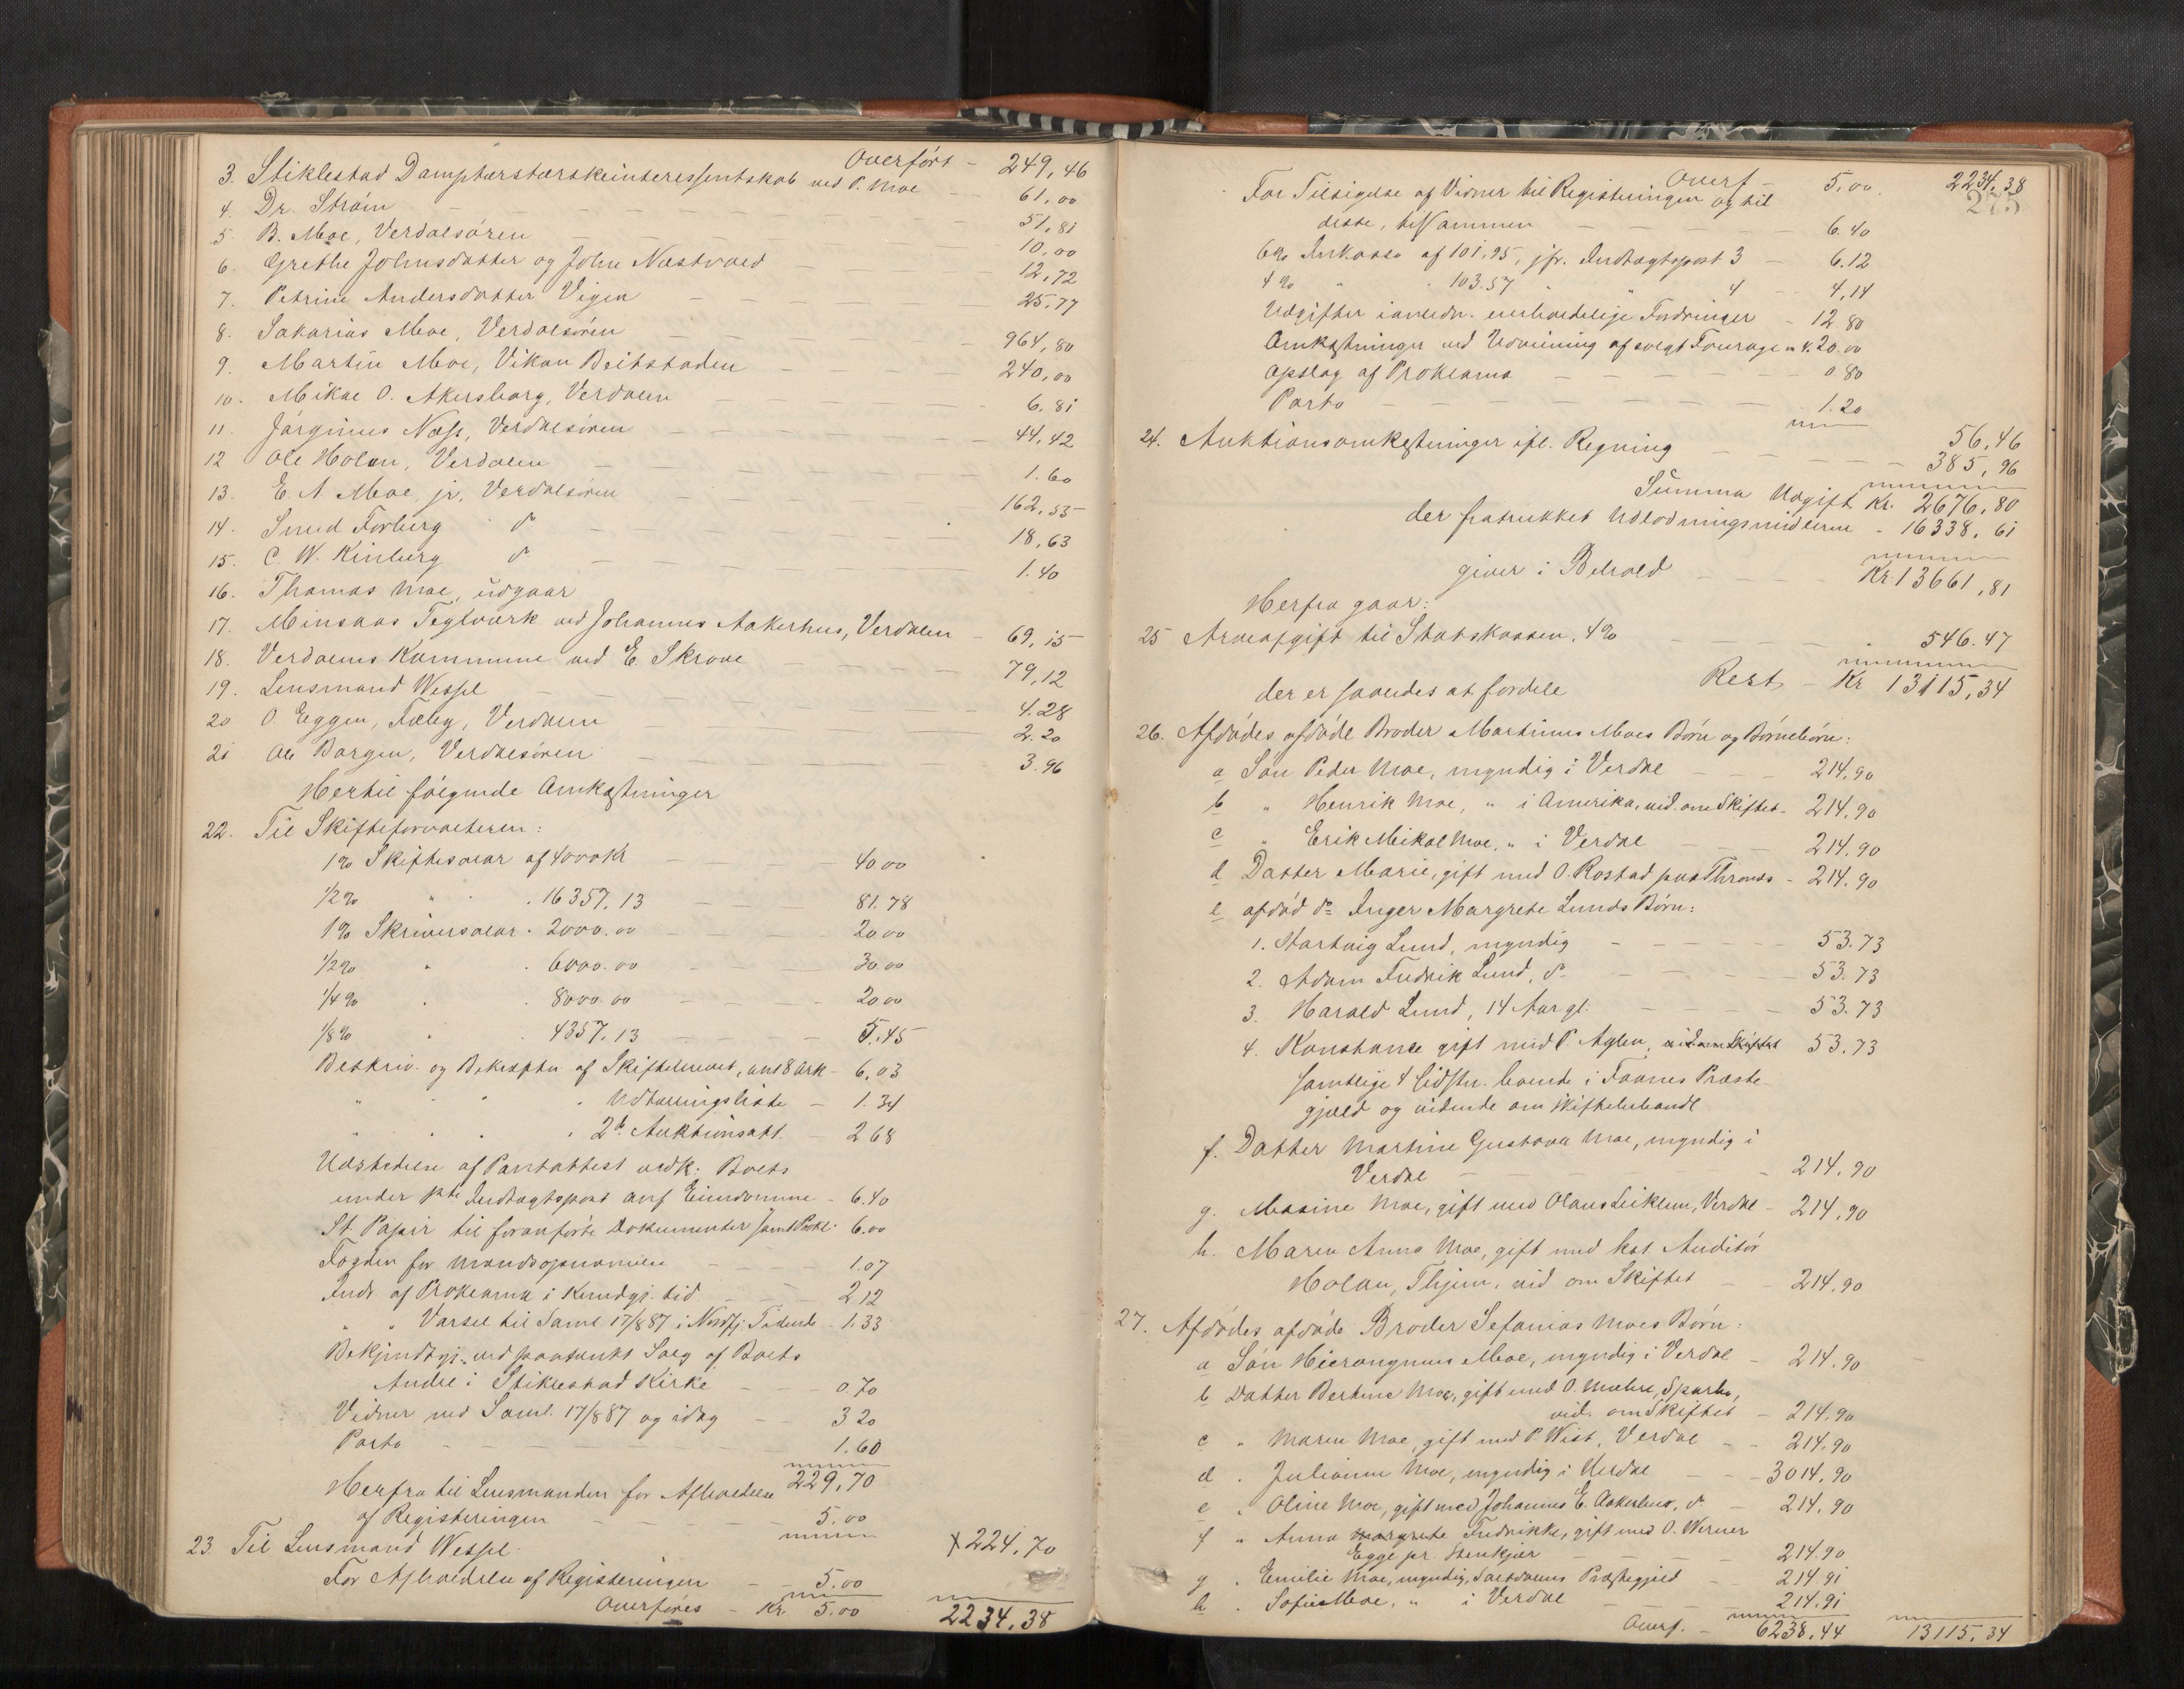 Overført - 249,46
3. Stiklestad Damptærskeinteressentskab ved P. Moe - 61,00
4. Dr. Strøm - 51,81
5. B. Moe, Verdalsøren - 10,00
6. Grethe Johnsdatter og John Næstvold - 12,72
7. Petrine Andersdatter Vigen - 25,77
8. Sakarias Moe, Verdalsøren - 964,80
9. Martin Moe, Vikan Beitstaden - 240,00
10. Mikal O. Akersborg, Verdalen - 6.81
11. Jørginus Næss, Verdalsøren - 44,42
12 Ole Holan, Verdalen - 1.60
13. E. A. Moe, jr. Verdalsøren - 162,55
14. Smed Forberg do - 18,63
15. C. W. Kinberg do - 1.40
16. Thomas Moe, udgaar
17. Minsaas Teglværk ved Johannes Aakerhus, Verdalen - 69,15
18. Verdalens Kommune ved E. Skrove - 79,12
19. Lensmand Wessel - 4.28
20 O. Eggen, Fæby, Verdalen - 2.20
21 Ole Borgen, Verdalsøren - 3.96
Hertil følgende Omkostninger
22. Til Skifteforvalteren:
1% Skiftesalær af 4000 Kr - 40.00
1/2% " " 16357.13 - 81.78
1% Skriversalær " 2000.00 - 20.00
1/2% " " 6000.00 - 30.00
1/4% " " 8000.00 - 20.00
1/8% " " 4357.13 - 5.45
Beskriv. og Bekræftn af Skiftebrevet, ant 8 Ark - 6,03
" " " " Udtællingsliste - 1.34
" " " " 2de Auktionsakt. - 2 68
Udstedelse af Pantattest vedk. Boets
under 1ste Indtægtspost anf Eiendomme - 6.40
St. Papir til foranførte Dokumenter samt Prokl. 6.00
Fogden for - 1.07
Indr. af Proklama i Kundgj. tid - 2 12
" " Varsel til Saml 17/8 87 i Nordtj. Tidende - 1.33
Bekjendtgj. ved paatænkt Salg af Boets
Andel i Stiklestad Kirke - 0.70
Vidner ved Saml. 17/8 87 og idag - 3 20
Porto - 1.60
229,70
Herfra til Lensmanden for Afholdelse
af Registeringen - 5.00
X 224,70
23. Til Lensmand Wessel
For Afholdelse af Registeringen - 5.00
Overføres - Kr 5.00 2234,38
Overf - 5,00. 2234,38
275
For Tilsigelse af Vidner til Registeringen og til
disse, tilsammen - 6.40
6% Inkasso af 101,95, jfr. Indtægtspost 3 - 6.12
4% " " 103.57 " " 4 - 4,14
Udgifter i anledn. uerholdelige Fordringer - 12 80
Omkostninger ved Udveining af solgt Fourage m. v. 20.00
Opslag af Proklama - 0.80
Porto - 1.20
56,46
24. Auktionsomkostninger ifl. Regning - 385,96
Summa Udgift Kr. 2676,80
der fratrukket Udlodningsmidlerne - 16338,61
giver i Behold - Kr. 13661,81
Herfra gaar:
25 Arveafgift til Statskassen, 4% - 546.47
Rest - Kr 13115,34
der er saaledes at fordele
26. Afdødes afdøde Broder Martinus Moes Børn og Børnebørn:
a Søn Peder Moe, myndig i Verdal - 214,90
b " Henrik Moe, " i Amerika, vid. om Skiftet - 214,90
c " Erik Mikal Moe, " i Verdal - 214.90
d Datter Marie, gift med O. Rostad paa Thronds - 214.90
e afdød do Inger Margrete Lunds Børn:
1. Hartvig Lund, myndig - 53.73
2. Adam Fredrik Lund, do - 53.73
3. Harald Lund, 14 Aar gl. - 53.73
4. Konstance gift med P. Aglen, vid. om Skiftet 53.73
samtlige 4 sidstn. boende i Fosnes Præste-
gjeld og vidende om Skiftebehandl
f. Datter Martine Gustava Moe, myndig i
Verdal - 214.90
g. Masine Moe, gift med Olaus Leiklem, Verdal - 214,90
h. Maren Anna Moe, gift med kst. Auditør
Holan, Thjem, vid om Skiftet - 214.90
27. Afdødes afdøde Broder Sefanias Moes Børn:
a Søn Hieronymus Moe, myndig i Verdal - 214.90
b Datter Bertine Moe, gift med O. Mæhre, Sparbu,
vid. om Skiftet - 214.90
c " Maren Moe, gift med P. Wist, Verdal - 214.90
d " Julianne Moe, myndig i Verdal - 3014.90
e " Oline Moe, gift med Johannes E. Aakerhus, do - 214.90
f " Anna Margrete Fredrikke, gift med O. Werner
Egge pr. Stenkjær - 214.90
g " Emilie Moe, myndig, Saltdalens Præstegjeld - 214.91
h " Sofie Moe, " i Verdal - 214.91
Overf. - 6238.44 13115,34